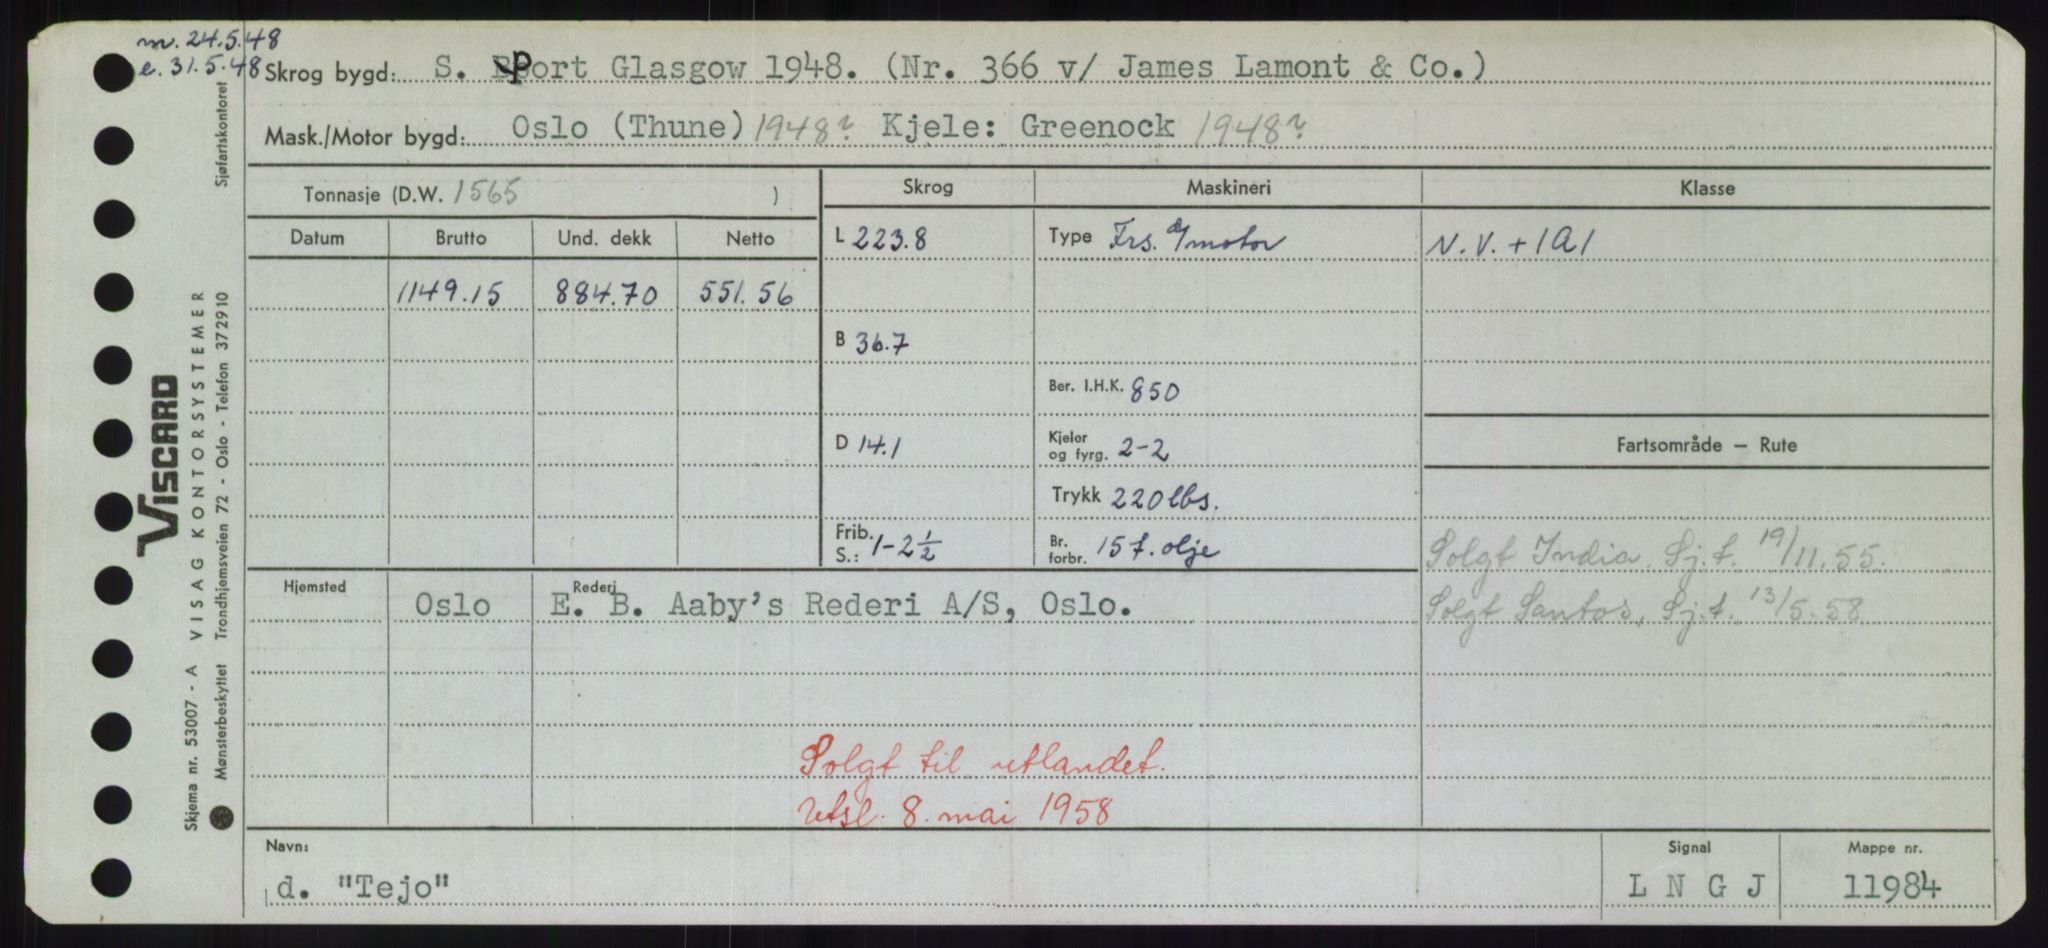 m. 24.5.48
e. 31.5.48
Skrog bygd: S. Port Glasgow 1948. (Nr. 366 v/ James Lamont & Co.)
Mask./Motor bygd: Oslo (Thune) 1948? Kjele: Greenock 1948?
Tonnasje (D.W. 1565 )
Skrog Maskineri Klasse
Datum Brutto Und. dekk Netto
L 223.8 Type Frs. d/motor N.V. + 1A1
1149.15 884.70 551.56
B 36.7
Ber. I.H.K. 850
D 14.1 Kjeler og fyrg. 2-2 Fartsområde — Rute
Trykk 220 lbs.
Frib. S.: 1-2½ Br. forbr. 15 t. olje
Solgt India, Sj.t. 19/11.55.
Hjemsted Rederi
Oslo E. B. Aaby's Rederi A/S, Oslo.
Solgt Santos, Sj.t. 13/5.58
Solgt til utlandet.
Utsl. 8. mai 1958
Navn: Signal Mappe nr.
d. "Tejo" L N G J 11984
VISCARD
Skjema nr. 53007 - A VISAG KONTORSYSTEMER
Mønsterbeskyttet Trondhjemsveien 72 - Oslo - Telefon 372910
Sjøfartskontoret